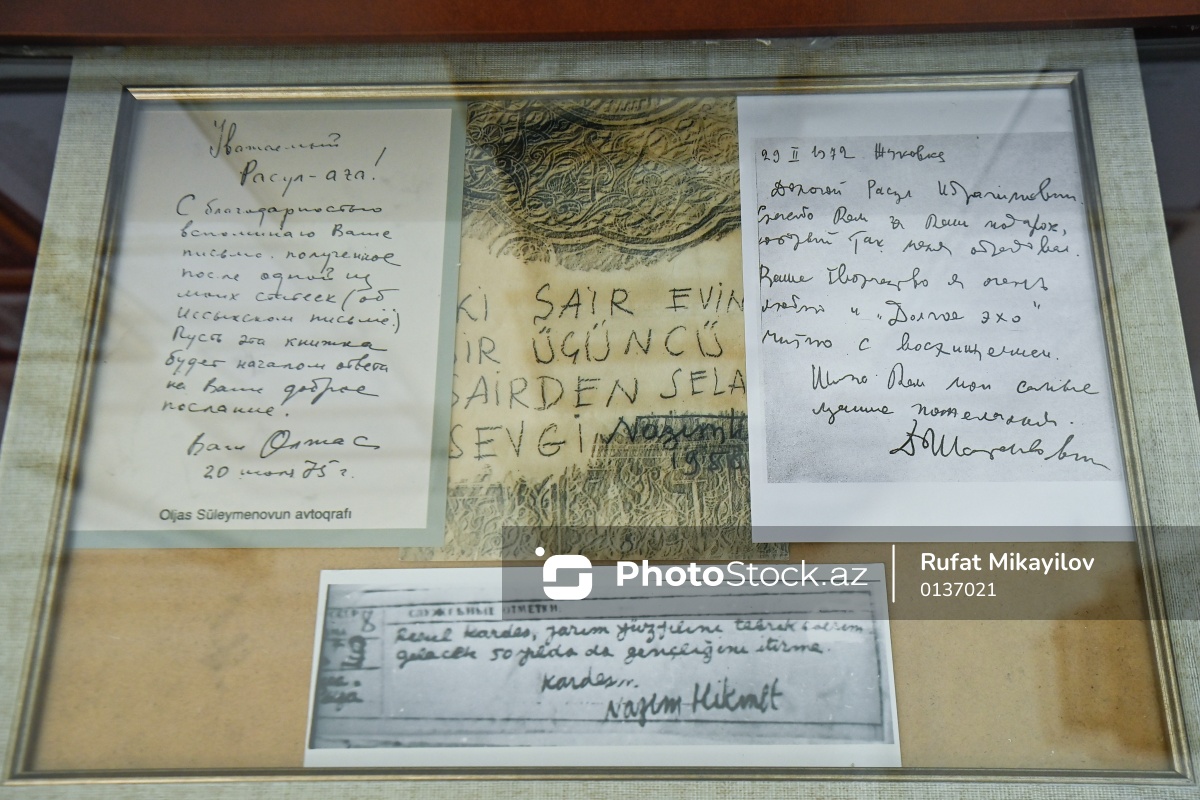 Уважаемый
Расул-ага!
С благодарностью
вспоминаю Ваше
письмо, полученное
после одной из
моих статеек (об
Иссыкском письме).
Пусть эта книжка
будет началом ответа
на Ваше доброе
послание.
Ваш Олжас
20 июля 75 г.
Oljas Süleymenovun avtoqrafı
Kİ ŞAİR EVİN
İR ÜÇÜNCÜ
ŞAİRDEN SELA
SEVGİ Nazim
29 II 1972 Жуковка
Дорогой Расул Ибрагимович.
Спасибо Вам за Ваш подарок,
который так меня обрадовал.
Ваше творчество я очень
люблю и „Долгое эхо"
читаю с восхищением.
Шлю Вам мои самые
лучшие пожелания.
ДШостакович
СЛУЖЕБНЫЕ ОТМЕТКИ
8
Resul kardeş, yarım yüzyılını tebrik ederim
gelecek 50 yılda da gençliğini itirme.
Kardeşin
Nazım Hikmet
PhotoStock.az
Rufat Mikayilov
0137021